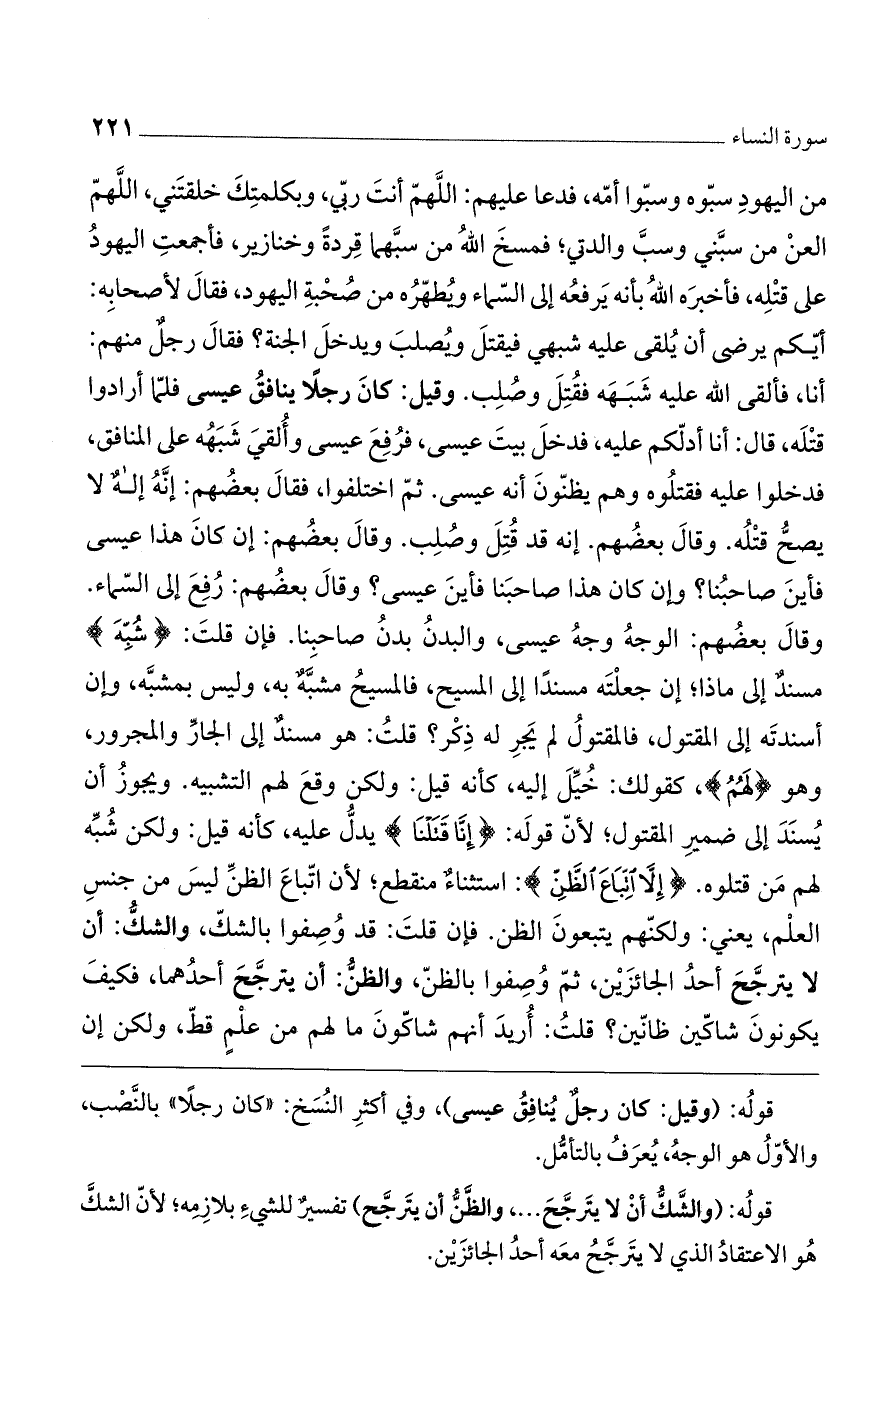 سورة النساء ٢٢١
من اليهودِ سبّوه وسبّوا أمّه، فدعا عليهم: اللَّهمّ أنتَ ربّي، وبكلمتِكَ خلقتَني، اللَّهمّ
العنْ من سبَّني وسبَّ والدتي؛ فمسخَ اللهُ من سبَّهما قِردةً وخنازير، فأجمعتِ اليهودُ
على قتْلِه، فأخبرَه اللهُ بأنه يَرفعُه إلى السّماء ويُطهّرُه من صُحْبةِ اليهود، فقالَ لأصحابِه:
أيّكم يرضى أن يُلقى عليه شبهي فيقتلَ ويُصلبَ ويدخلَ الجنة؟ فقالَ رجلٌ منهم:
أنا، فألقى الله عليه شَبَهَه فقُتِلَ وصُلِب. وقيل: كانَ رجلًا ينافقُ عيسى فلمّا أرادوا
قتْلَه، قال: أنا أدلّكم عليه، فدخلَ بيتَ عيسى، فرُفِعَ عيسى وأُلقيَ شَبَهُه على المنافق،
فدخلوا عليه فقتلُوه وهم يظنّونَ أنه عيسى. ثمّ اختلفوا، فقالَ بعضُهم: إنَّهُ إلهٌ لا
يصحُّ قتْلُه. وقالَ بعضُهم. إنه قد قُتِلَ وصُلِب. وقالَ بعضُهم: إن كانَ هذا عيسى
فأينَ صاحبُنا؟ وإن كان هذا صاحبَنا فأينَ عيسى؟ وقالَ بعضُهم: رُفِعَ إلى السّماء.
وقالَ بعضُهم: الوجهُ وجهُ عيسى، والبدنُ بدنُ صاحبِنا. فإن قلتَ: ﴿شُبِّهَ﴾
مسندٌ إلى ماذا؛ إن جعلْتَه مسندًا إلى المسيح، فالمسيحُ مشبَّهٌ به، وليس بمشبَّه، وإن
أسندتَه إلى المقتول، فالمقتولُ لم يَجرِ له ذِكْر؟ قلتُ: هو مسندٌ إلى الجارِّ والمجرور،
وهو ﴿لَهُمْ﴾، كقولك: خُيِّلَ إليه، كأنه قيل: ولكن وقعَ لهم التشبيه. ويجوزُ أن
يُسنَدَ إلى ضميرِ المقتول؛ لأنّ قولَه: ﴿إِنَّا قَتَلْنَا﴾ يدلُّ عليه، كأنه قيل: ولكن شُبِّه
لهم مَن قتلوه. ﴿إِلَّا ٱتِّبَاعَ ٱلظَّنِّ﴾: استثناءٌ منقطع؛ لأن اتّباعَ الظنِّ ليسَ من جنسِ
العلْم، يعني: ولكنّهم يتبعونَ الظن. فإن قلتَ: قد وُصِفوا بالشكّ، والشكُّ: أن
لا يترجَّحَ أحدُ الجائزَيْن، ثمّ وُصِفوا بالظنّ، والظنُّ: أن يترجَّحَ أحدُهما، فكيفَ
يكونونَ شاكّين ظانّين؟ قلتُ: أُريدَ أنهم شاكّونَ ما لهم من علْمٍ قطّ، ولكن إن
قولُه: (وقيل: كان رجلٌ يُنافِقُ عيسى)، وفي أكثرِ النُسَخ: «كان رجلًا» بالنَّصْب،
والأوّلُ هو الوجهُ، يُعرَفُ بالتأمُّل.
قولُه: (والشَّكُّ أنْ لا يَتَرجَّحَ...، والظَّنُّ أن يَتَرجَّح) تفسيرٌ للشيءِ بلازِمِه؛ لأنّ الشكَّ
هُو الاعتقادُ الذي لا يَتَرجَّحُ معَه أحدُ الجائزَيْن.